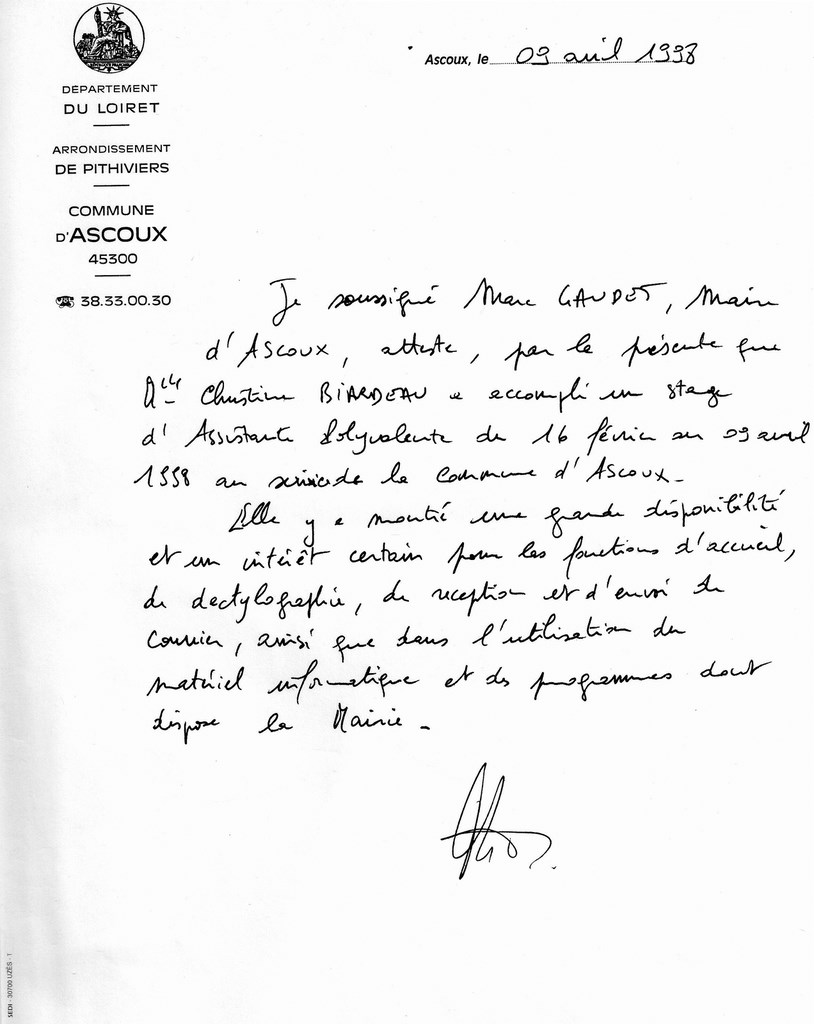 Ascoux, le 09 avril 1998
DEPARTEMENT
DU LOIRET
ARRONDISSEMENT
DE PITHIVIERS
COMMUNE
D'ASCOUX
45300
38.33.00.30
Je soussigné Marc GAUDET, Maire
d'Ascoux, atteste, par la présente que
Mlle Christine BIARDEAU a accompli un stage
d'Assistante Polyvalente du 16 février au 09 avril
1998 au service de la Commune d'Ascoux.
Elle y a montré une grande disponibilité
et un intérêt certain pour les fonctions d'accueil,
de dactylographie, de reception et d'envoi du
courrier, ainsi que dans l'utilisation du
matériel informatique et des programmes dont
dispose la Mairie.
SEDI - 30700 UZÈS - 1